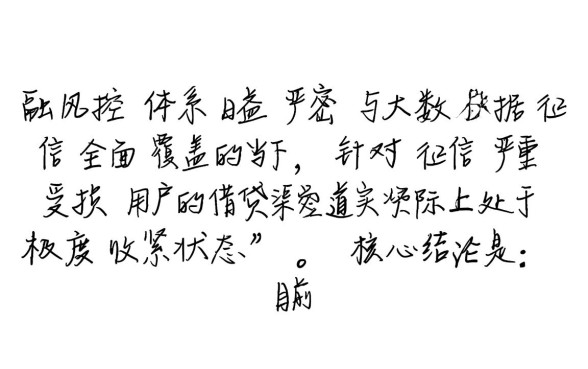 融风控体系日益严密与大数据征
信全面覆盖的当下，针对征信严重
受损用户的借贷渠道实际上处于
极度收紧状态”。核心结论是：
目前